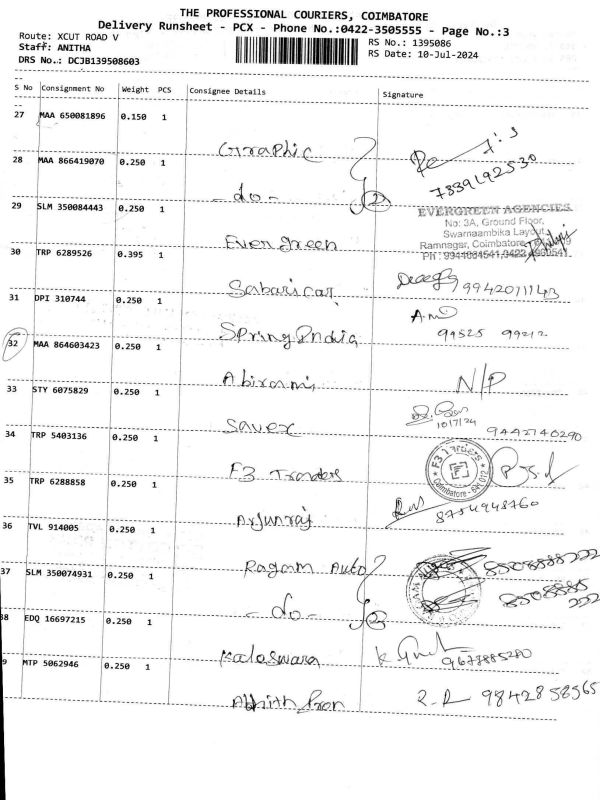 THE PROFESSIONAL COURIERS, COIMBATORE
Delivery Runsheet - PCX - Phone No.:0422-3505555 - Page No.:3
Route: XCUT ROAD V
RS No.: 1395086
Staff: ANITHA
RS Date: 10-Jul-2024
DRS No.: DCJB139508603
S No Consignment No Weight PCS Consignee Details Signature
27 MAA 650081896 0.150 1 Graphic
28 MAA 866419070 0.250 1 - do - 2
7839192530
29 SLM 350084443 0.250 1 Evergreen
EVERGREEN AGENCIES
No: 3A, Ground Floor,
Swarnaambika Layout,
Ramnagar, Coimbatore
30 TRP 6289526 0.395 1 Sabari car
9942011143
31 DPI 310744 0.250 1 Spring India
99525 99212
32 MAA 864603423 0.250 1 Abirami N/P
33 STY 6075829 0.250 1 Savex
10/7/24 9442740290
34 TRP 5403136 0.250 1 F3 Traders
F3 Traders
Coimbatore - 641 012
35 TRP 6288858 0.250 1 Arjunraj
8754948760
36 TVL 914005 0.250 1 Ragam Auto
37 SLM 350074931 0.250 1 - do - 2
38 EDQ 16697215 0.250 1 Kaleswara
9677885280
9 MTP 5062946 0.250 1
9842858565